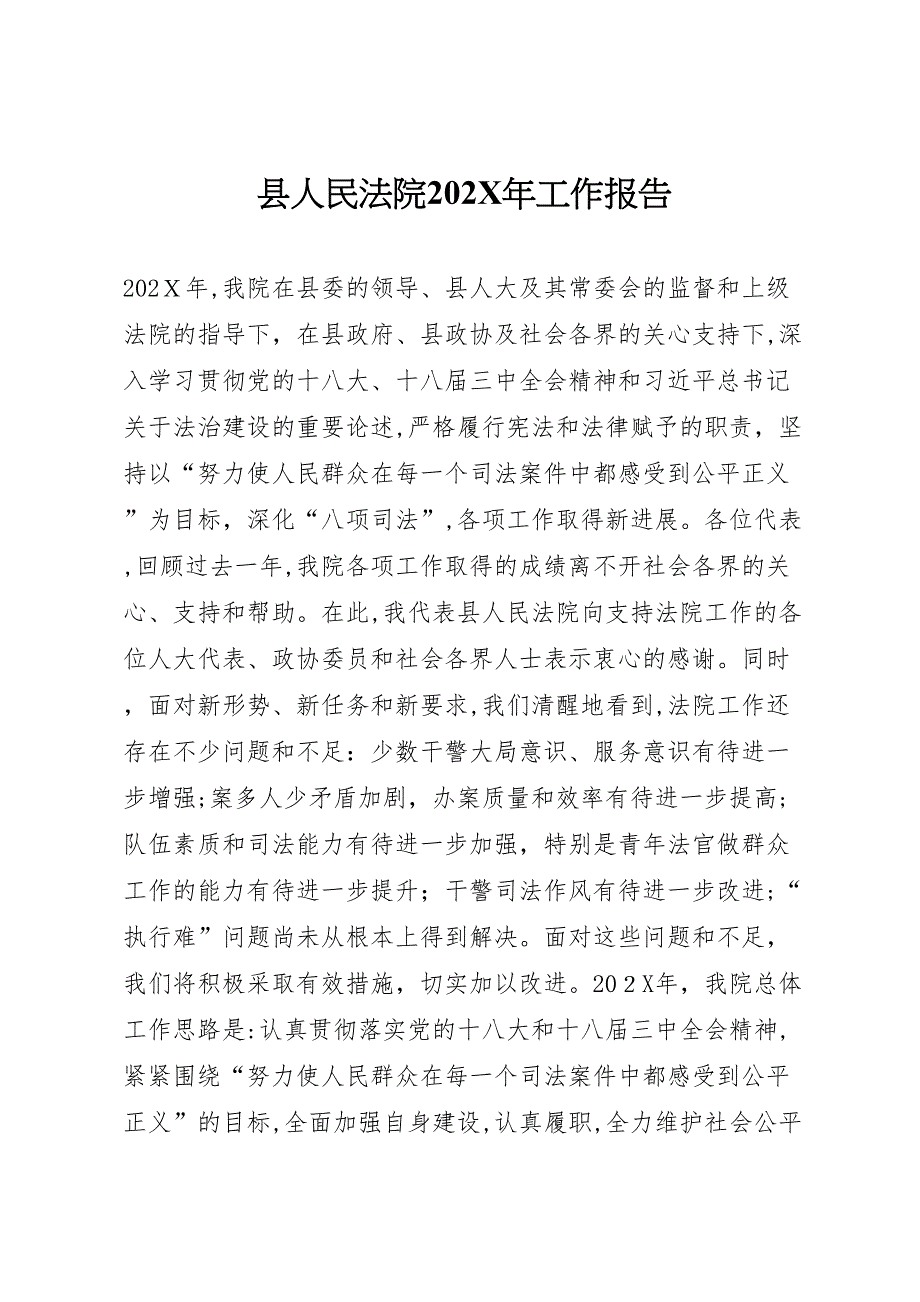 县人民法院202X年工作报告
202X年,我院在县委的领导、县人大及其常委会的监督和上级
法院的指导下，在县政府、县政协及社会各界的关心支持下,深
入学习贯彻党的十八大、十八届三中全会精神和习近平总书记
关于法治建设的重要论述,严格履行宪法和法律赋予的职责，坚
持以“努力使人民群众在每一个司法案件中都感受到公平正义
”为目标，深化“八项司法”,各项工作取得新进展。各位代表
,回顾过去一年,我院各项工作取得的成绩离不开社会各界的关
心、支持和帮助。在此,我代表县人民法院向支持法院工作的各
位人大代表、政协委员和社会各界人士表示衷心的感谢。同时
，面对新形势、新任务和新要求,我们清醒地看到,法院工作还
存在不少问题和不足：少数干警大局意识、服务意识有待进一
步增强;案多人少矛盾加剧，办案质量和效率有待进一步提高;
队伍素质和司法能力有待进一步加强，特别是青年法官做群众
工作的能力有待进一步提升；干警司法作风有待进一步改进;“
执行难”问题尚未从根本上得到解决。面对这些问题和不足，
我们将积极采取有效措施，切实加以改进。20２X年，我院总体
工作思路是:认真贯彻落实党的十八大和十八届三中全会精神,
紧紧围绕“努力使人民群众在每一个司法案件中都感受到公平
正义”的目标,全面加强自身建设,认真履职,全力维护社会公平